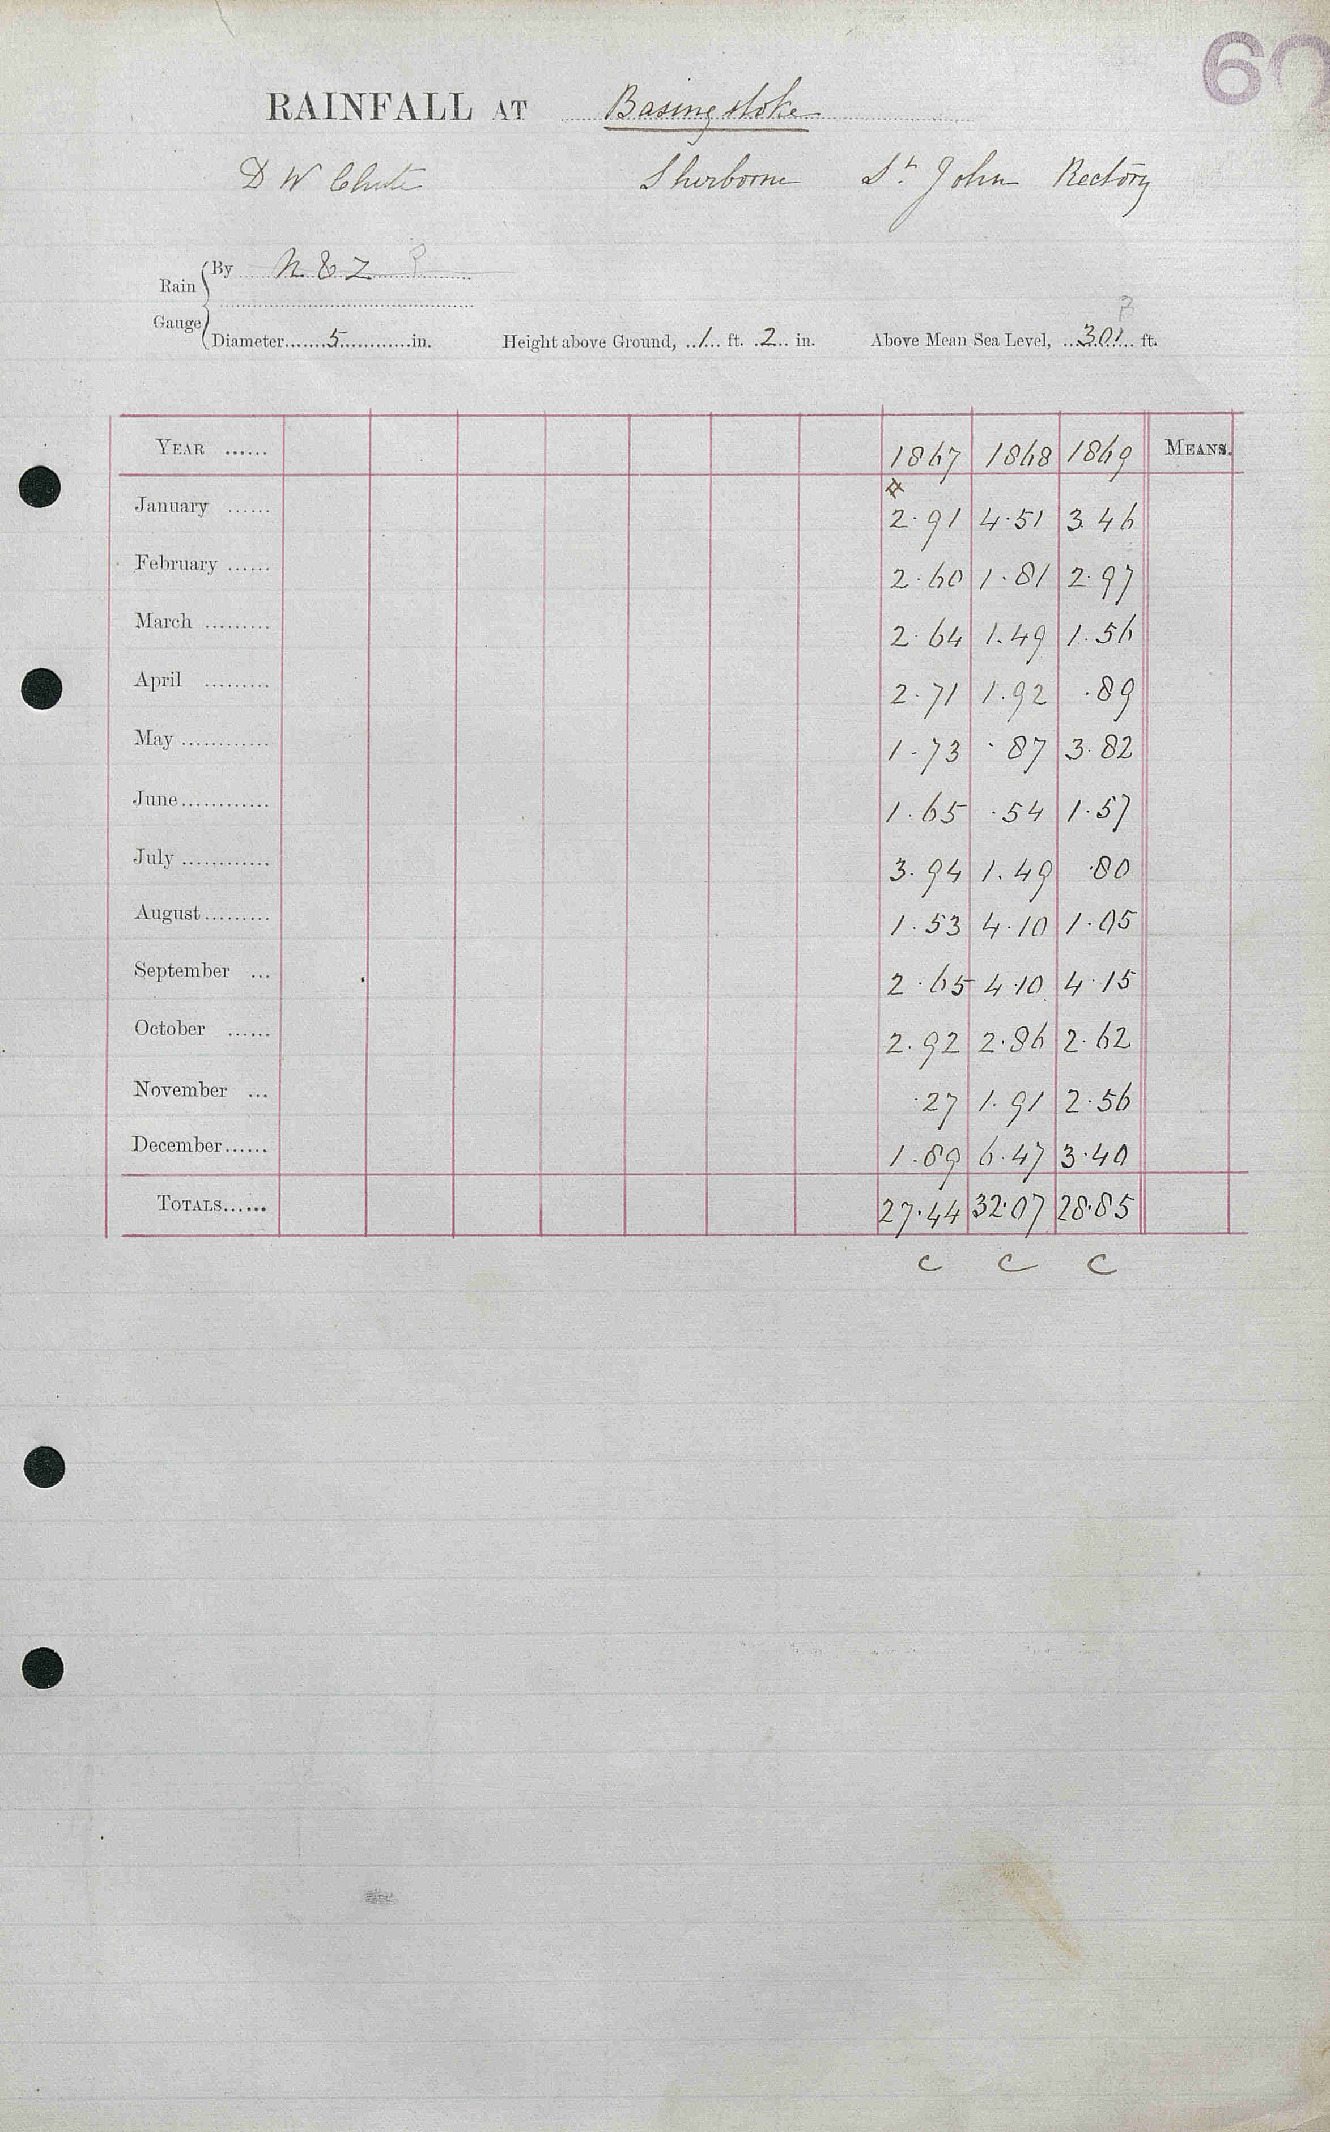 60
RAINFALL AT Basingstoke
D W Chute Sherborne St. John Rectory
Rain Gauge
By N & Z ?
Diameter 5 in. Height above Ground, 1 ft. 2 in. Above Mean Sea Level, 301 ft. ?
YEAR ...... 1867 1868 1869 MEANS.
January ...... 2.91 4.51 3.46
February ...... 2.60 1.81 2.97
March ......... 2.64 1.49 1.56
April ......... 2.71 1.92 .89
May ............ 1.73 .87 3.82
June............ 1.65 .54 1.57
July ............ 3.94 1.49 .80
August......... 1.53 4.10 1.05
September ... 2.65 4.10 4.15
October ...... 2.92 2.86 2.62
November ... .27 1.91 2.56
December...... 1.89 6.47 3.40
TOTALS...... 27.44 32.07 28.85
C C C